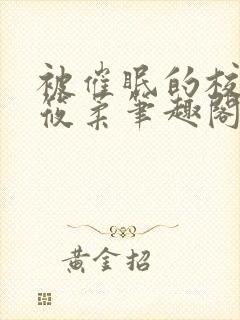 被催眠的校
筱柔笔趣阁
黄金招